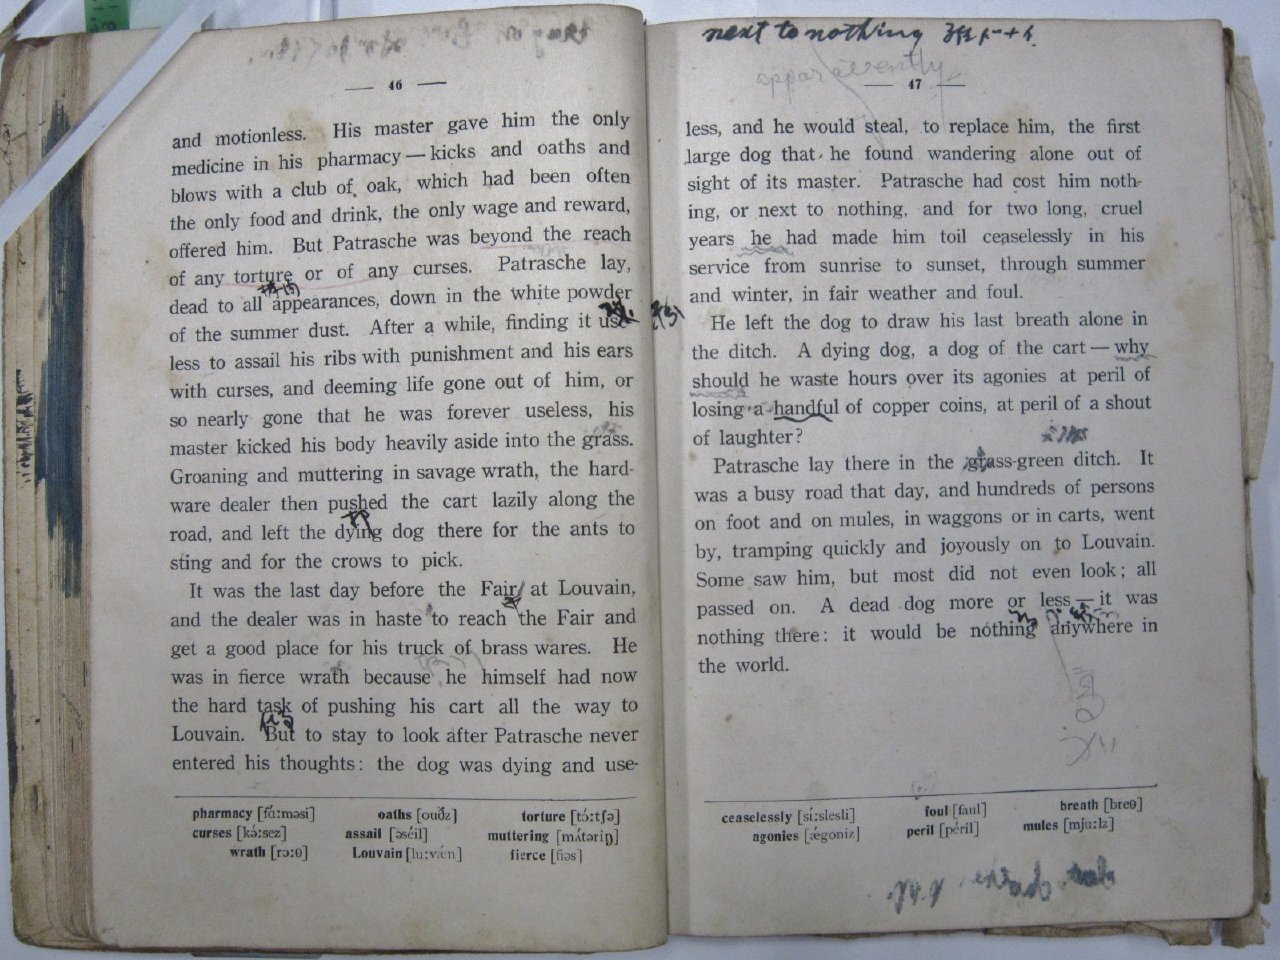 — 46 —
and motionless. His master gave him the only
medicine in his pharmacy — kicks and oaths and
blows with a club of oak, which had been often
the only food and drink, the only wage and reward,
offered him. But Patrasche was beyond the reach
of any torture or of any curses. Patrasche lay,
dead to all appearances, down in the white powder
of the summer dust. After a while, finding it use-
less to assail his ribs with punishment and his ears
with curses, and deeming life gone out of him, or
so nearly gone that he was forever useless, his
master kicked his body heavily aside into the grass.
Groaning and muttering in savage wrath, the hard-
ware dealer then pushed the cart lazily along the
road, and left the dying dog there for the ants to
sting and for the crows to pick.
It was the last day before the Fair at Louvain,
and the dealer was in haste to reach the Fair and
get a good place for his truck of brass wares. He
was in fierce wrath because he himself had now
the hard task of pushing his cart all the way to
Louvain. But to stay to look after Patrasche never
entered his thoughts: the dog was dying and use-
pharmacy [fɑ́ːməsi] oaths [ouðz] torture [tɔ́ːtʃə]
curses [kə́ːsez] assail [əséil] muttering [mʌ́təriŋ]
wrath [rɔːθ] Louvain [luːvǽn] fierce [fiəs]
next to nothing
apparevently
— 47 —
less, and he would steal, to replace him, the first
large dog that he found wandering alone out of
sight of its master. Patrasche had cost him noth-
ing, or next to nothing, and for two long, cruel
years he had made him toil ceaselessly in his
service from sunrise to sunset, through summer
and winter, in fair weather and foul.
He left the dog to draw his last breath alone in
the ditch. A dying dog, a dog of the cart — why
should he waste hours over its agonies at peril of
losing a handful of copper coins, at peril of a shout
of laughter?
Patrasche lay there in the grass-green ditch. It
was a busy road that day, and hundreds of persons
on foot and on mules, in waggons or in carts, went
by, tramping quickly and joyously on to Louvain.
Some saw him, but most did not even look; all
passed on. A dead dog more or less — it was
nothing there: it would be nothing anywhere in
the world.
ceaselessly [síːslesli] foul [faul] breath [breθ]
agonies [ǽgoniz] peril [péril] mules [mjuːlz]